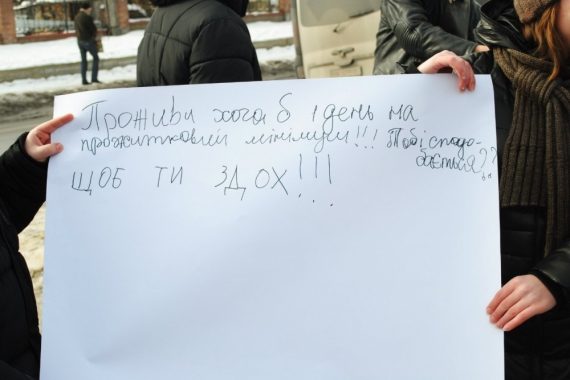 Проживи хоча б 1 день на
прожитковий мінімум!!! Тобі сподо-
бається??
ЩОБ ТИ ЗДОХ!!!